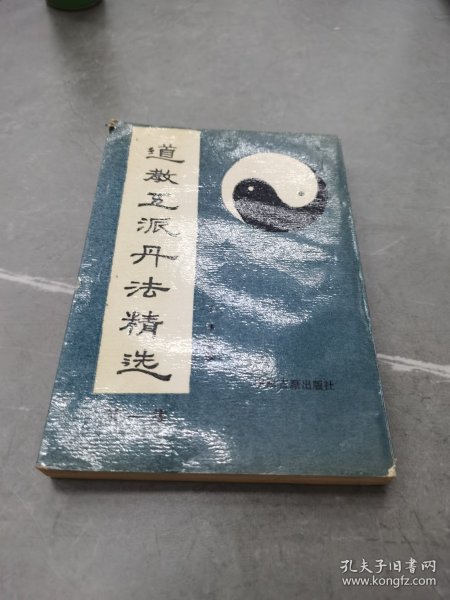 道教五派丹法精选
第一集
古籍出版社
孔夫子旧书网
www.kongfz.com